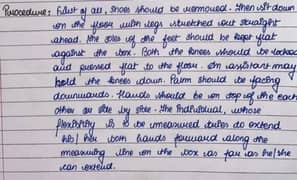 Procedure: First of all, shoes should be removed. Then sit down
on the floor with legs stretched out straight
ahead. The soles of the feet should be kept flat
against the box. Both the knees should be locked
and pressed flat to the floor. An assistant may
hold the knees down. Palm should be facing
downwards. Hands should be on top of the each
other or side by side. The individual, whose
flexibility is to be measured tries to extend
his/her both hands forward along the
measuring line on the box as far as he/she
can extend.